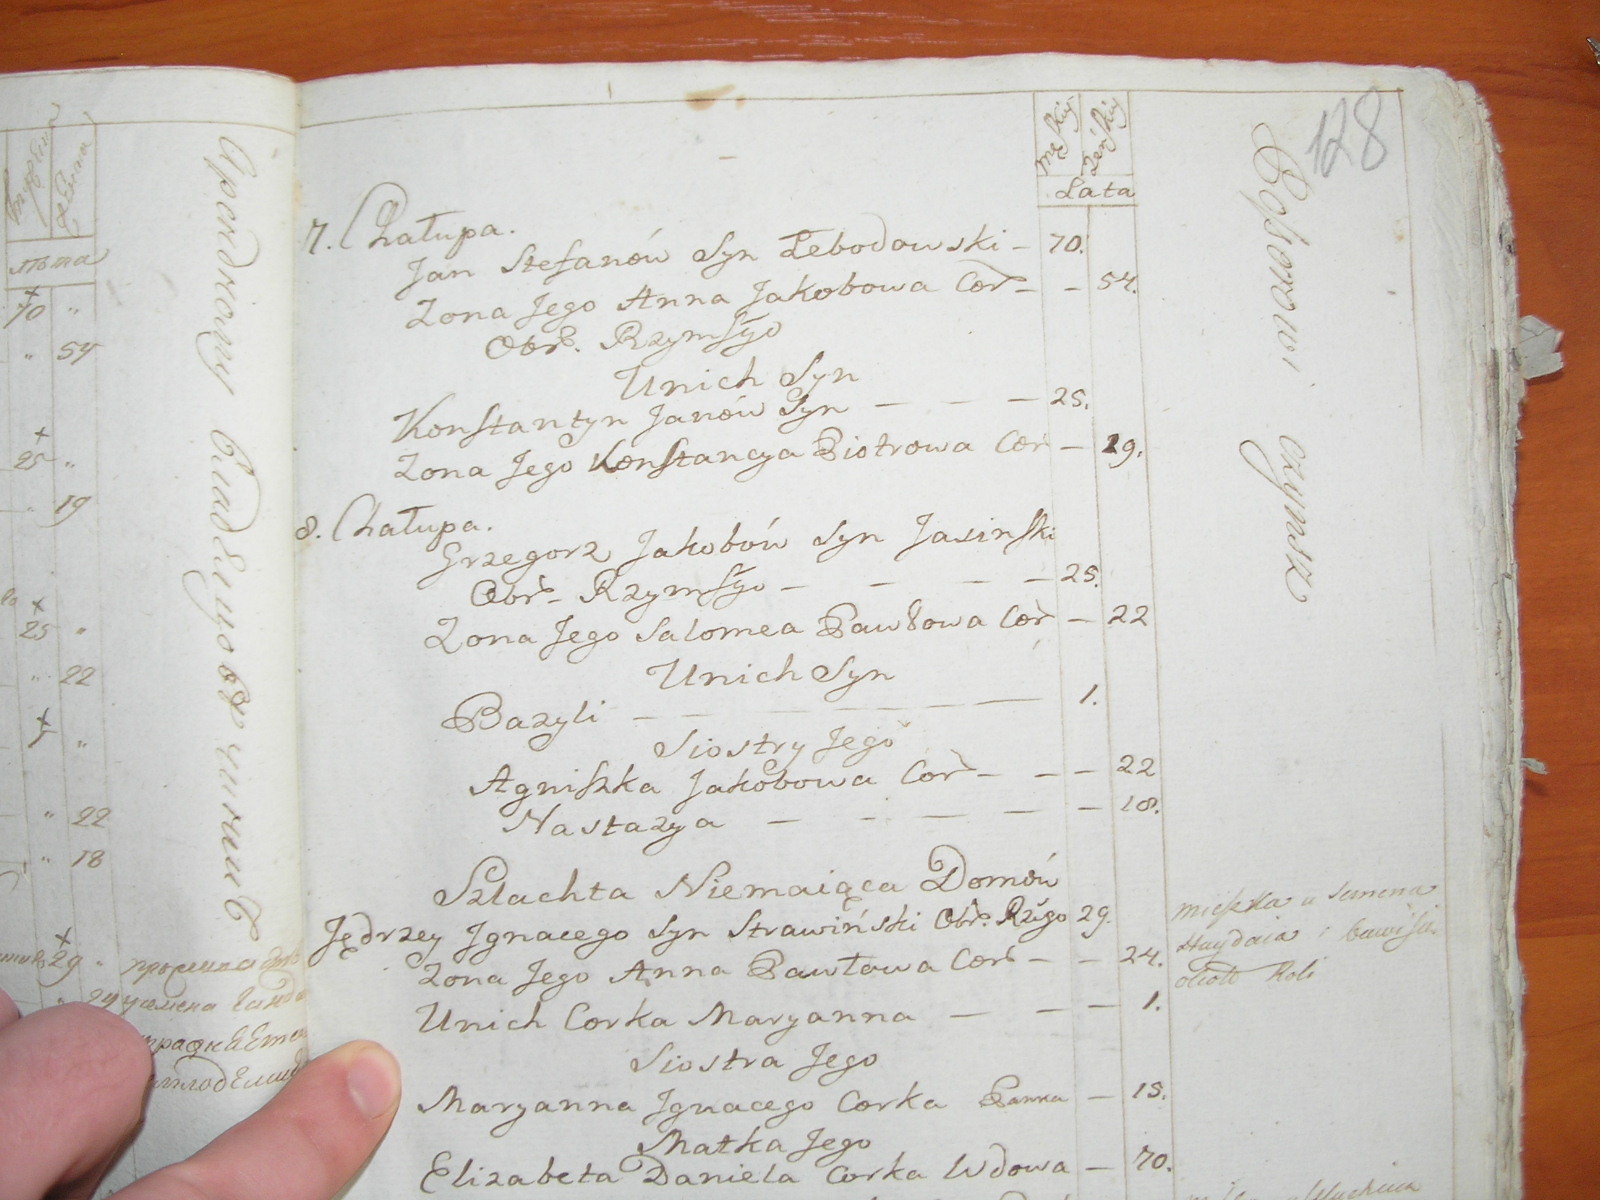 128
męskiy żeńskiy
Lata
7. Chałupa.
Jan Stefanów Syn Łebodowski - 70.
Zona Jego Anna Jakobowa Cor - - 54.
Obr. Rzymsgo
Unich Syn
Konstantyn Janów Syn - - - 25.
Zona Jego Konstancya Piotrowa Cor - 19.
8. Chałupa.
Grzegorz Jakobów Syn Jasinski
Obr. Rzymsgo - - - - 25.
Zona Jego Salomea Pawłowa Cor - 22
Unich Syn
Bazyli - - - - - 1.
Siostry Jego
Agniszka Jakobowa Cor - - - 22
Nastazya - - - - - 18.
Szlachta Niemaiąca Domów
Jędrzey Jgnacego Syn Strawiński Obr. Rzgo 29.
Zona Jego Anna Pawłowa Cor - - 24.
Unich Corka Maryanna - - - 1.
Siostra Jego
Maryanna Jgnacego Corka Panna - 15.
Matka Jego
Elizabeta Daniela Corka Wdowa - 70.
mieszka u Semena
Haydaia i bawi się
około Roli
Czynsz
лѣта
70 "
" 54
25 "
" 19
25 "
" 22
1 "
" 22
" 18
29 "
" 24